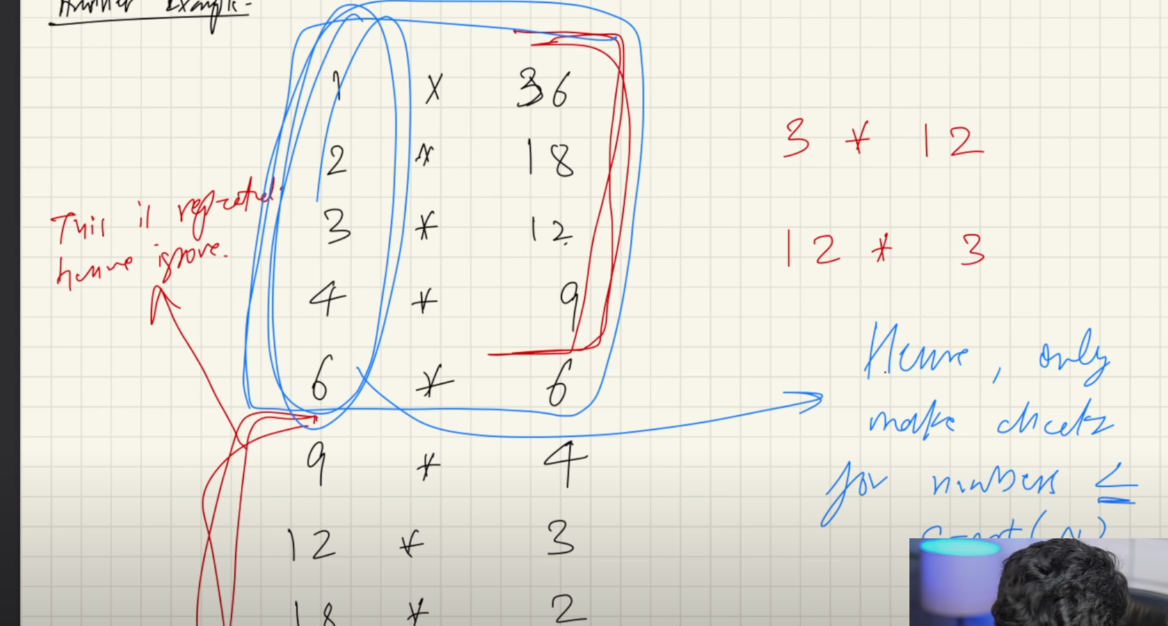 Another Example-
1 x 36
2 * 18
3 * 12
4 * 9
6 * 6
9 * 4
12 * 3
18 * 2
This is repeated
hence ignore.
3 * 12
12 * 3
Hence, only
make checks
for numbers ≤